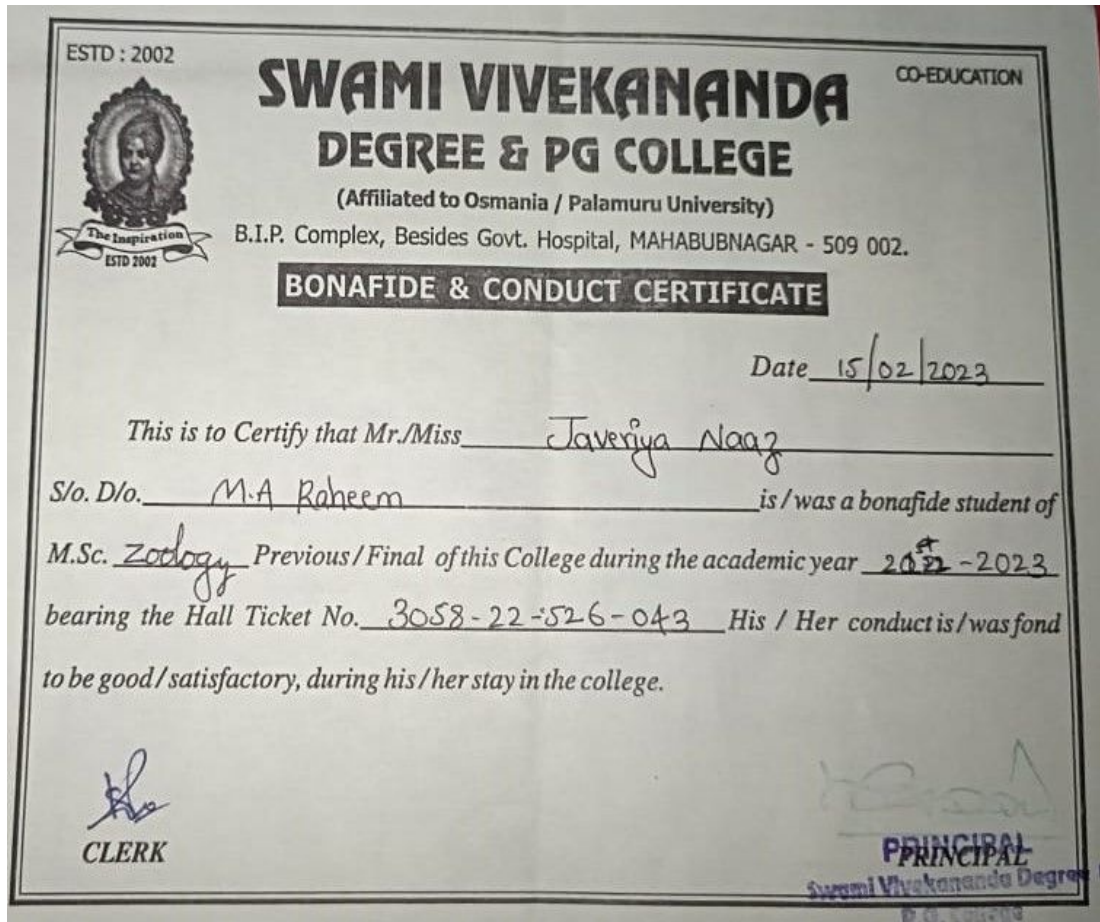 ESTD : 2002
CO-EDUCATION
SWAMI VIVEKANANDA
DEGREE & PG COLLEGE
(Affiliated to Osmania / Palamuru University)
The Inspiration
ESTD 2002
B.I.P. Complex, Besides Govt. Hospital, MAHABUBNAGAR - 509 002.
BONAFIDE & CONDUCT CERTIFICATE
Date 15/02/2023
This is to Certify that Mr./Miss Javeriya Naaz
S/o. D/o. M.A Raheem is / was a bonafide student of
M.Sc. Zoology Previous / Final of this College during the academic year -2023
bearing the Hall Ticket No. 3058-22-526-043 His / Her conduct is / was fond
to be good / satisfactory, during his / her stay in the college.
CLERK
PRINCIPAL
PRINCIPAL
Swami Vivekananda Degree